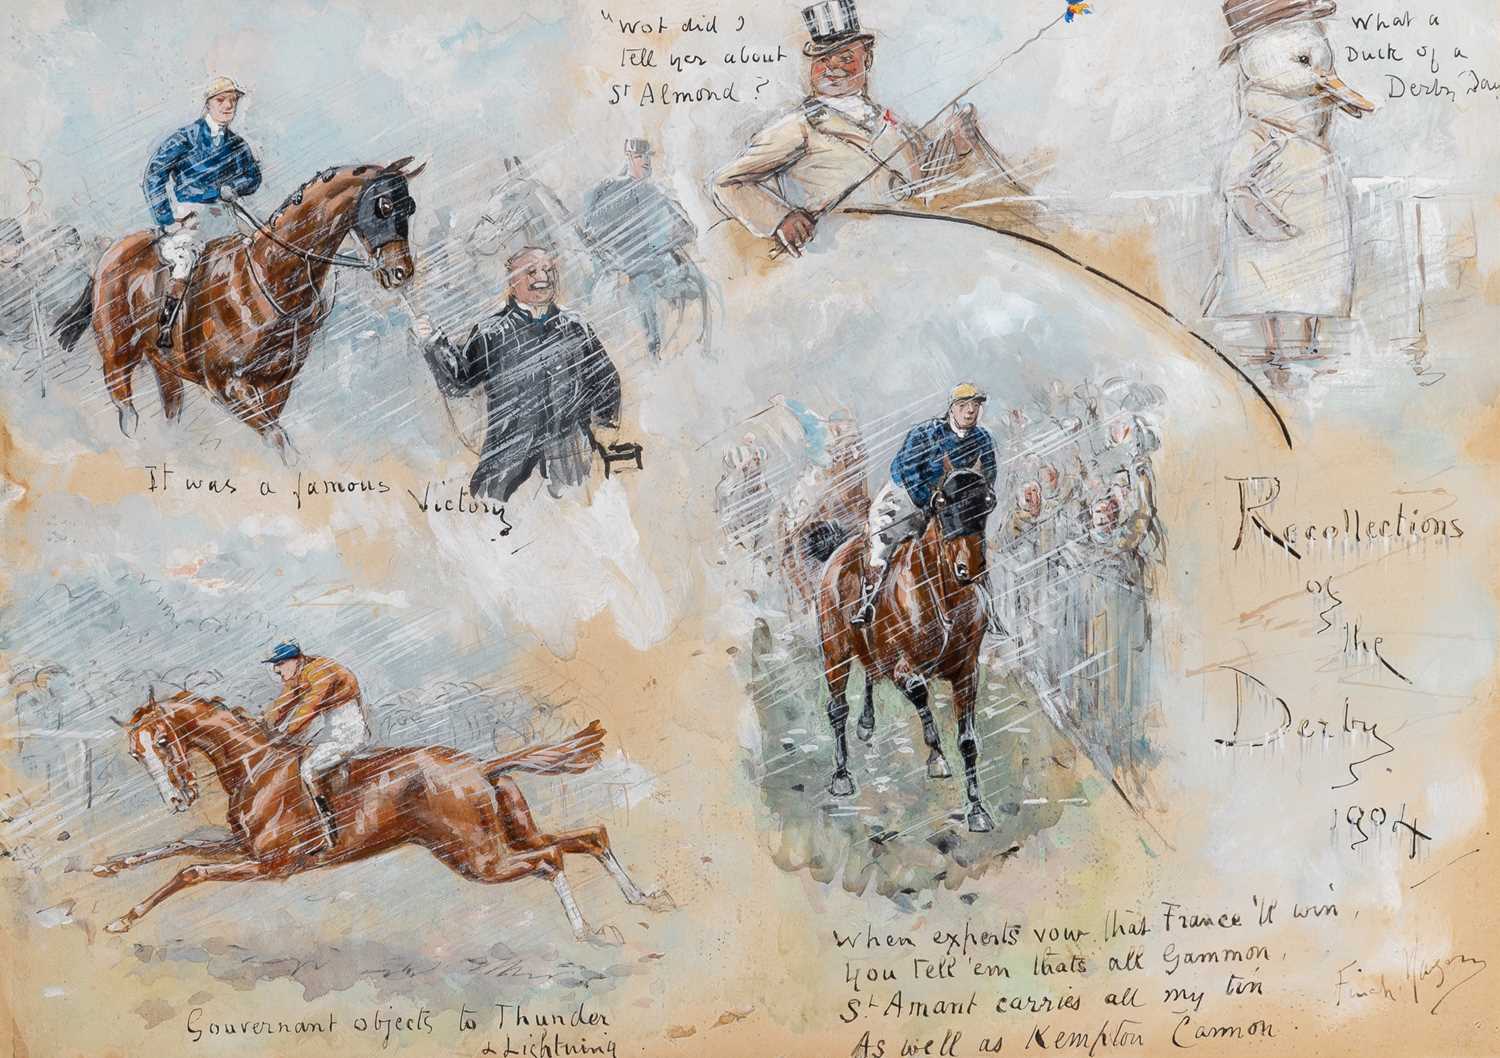 "Wot did I
tell yer about
St Almond?
What a
Duck of a
Derby Day
It was a famous Victory
Recollections
of
the
Derby
1904
When experts vow that France'll win,
You tell 'em thats all Gammon,
St Amant carries all my tin
As well as Kempton Cannon
Finch Mason
Gouvernant objects to Thunder
& Lightning